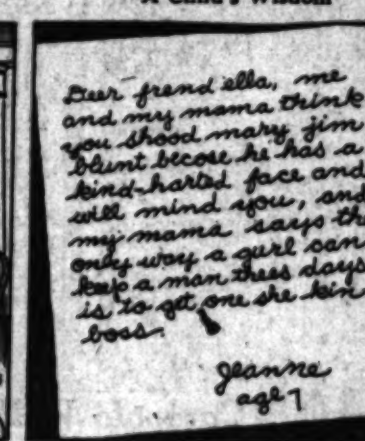 A Child's Wisdom
Deer frend ella, me
and my mama think
you shood mary jim
blunt becose he has a
kind-harted face and
will mind you, and
my mama says the
only way a gurl can
keep a man thees days
is to get one she kin
boss.
Jeanne
age 7